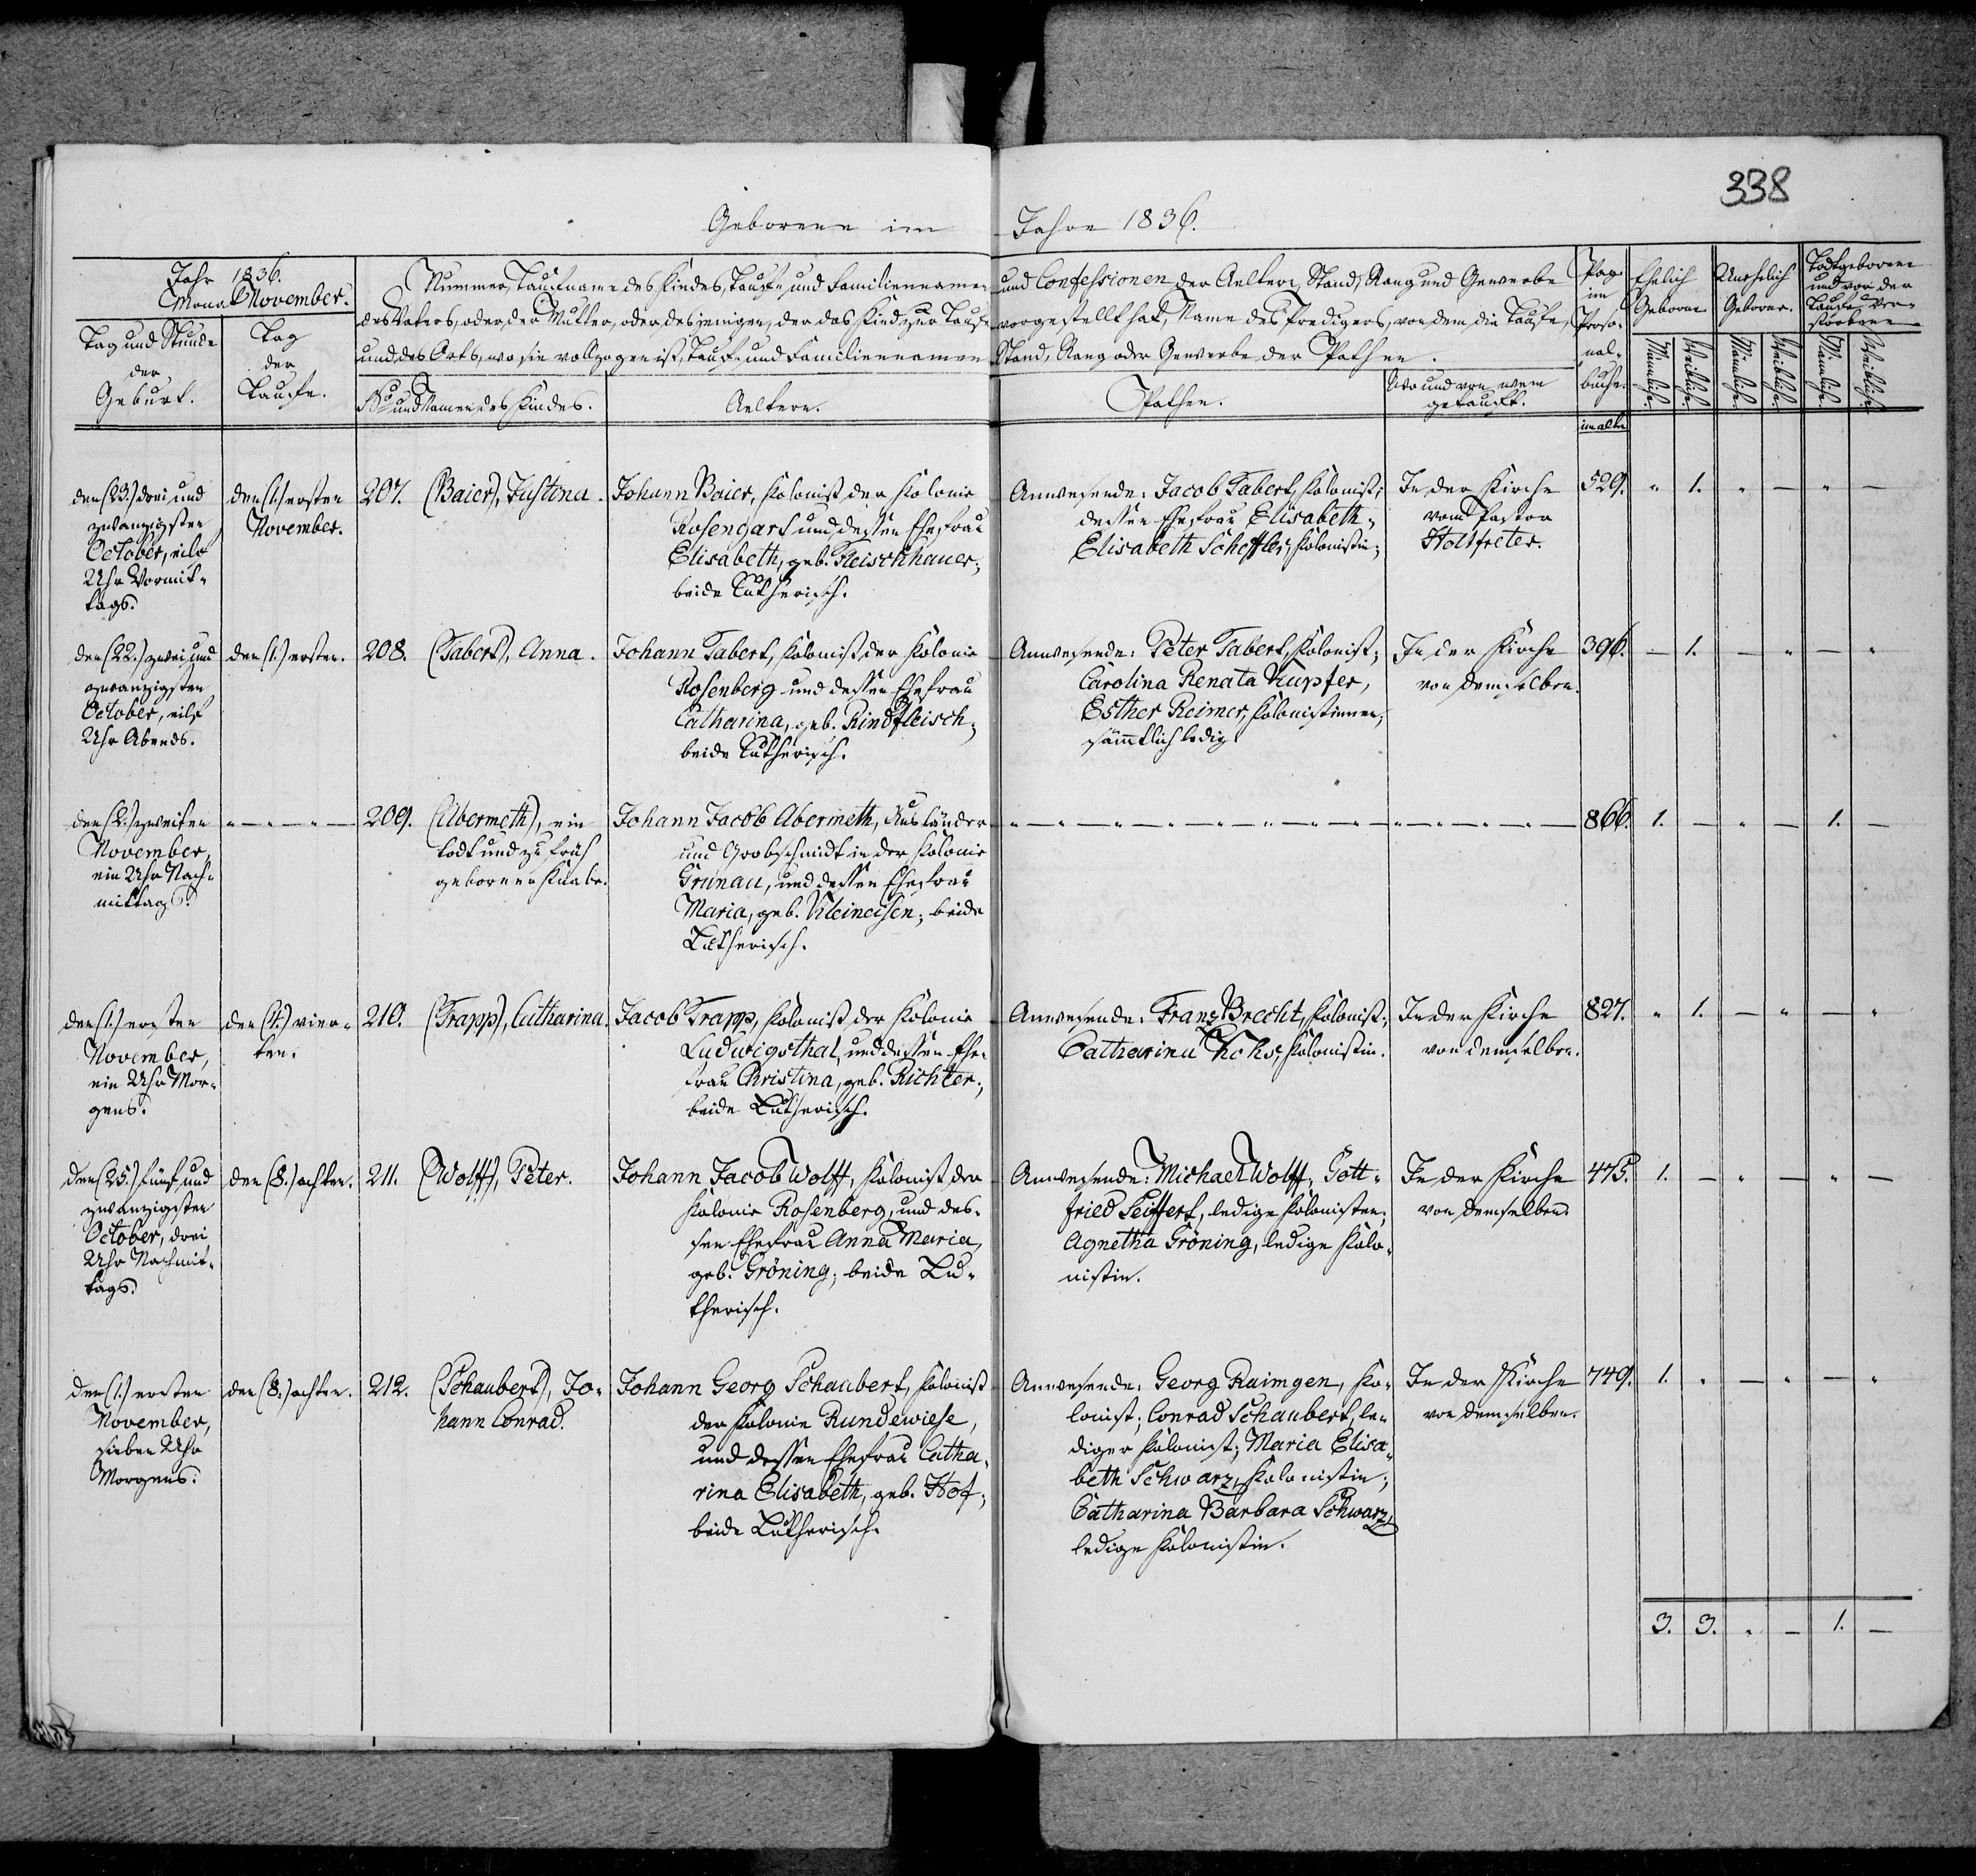 338
Geborene im Jahre 1836.
Jahr 1836.
Monat November.
Tag und Stunde
der
Geburt.
Tag
der
Taufe.
Nummer, Taufname des Kindes, Tauf- und Familiennamen und Confessionen der Aeltern, Stand, Rang und Gewerbe
des Vaters, oder der Mutter, oder desjenigen, der das Kind zur Taufe vorgestellt hat, Name des Predigers, von dem die Taufe,
und des Orts, wo sie vollzogen ist, Tauf- und Familiennamen Stand, Rang oder Gewerbe der Pathen.
No und Namen des Kindes.
Aeltern.
Pathen.
Wo und von wem
getauft.
Pag.
im
Perso-
nal-
buche.
im alten
Ehelich
Geborne
Unehelich
Geborene.
Todtgeborene
und vor der
Taufe Ver-
storbene
Männliche.
Weibliche.
Männliche.
Weibliche.
Männliche.
Weibliche.
den (23.) drei und
zwanzigsten
October, eilf
Uhr Vormit-
tags.
den (1.) ersten
November.
207. (Baier), Justina.
Johann Baier, Kolonist der Kolonie
Rosengart und dessen Ehefrau
Elisabeth, geb. Fleischhauer;
beide Lutherisch.
Anwesende: Jacob Tabert, Kolonist;
dessen Ehefrau Elisabeth;
Elisabeth Scheffler, Kolonistin;
In der Kirche
vom Pastor
Holtfreter.
529. " 1. " — " —
den (22.) zwei und
zwanzigsten
October, eilf
Uhr Abends.
den (1.) ersten.
208. (Tabert), Anna.
Johann Tabert, Kolonist der Kolonie
Rosenberg und dessen Ehefrau
Catharina, geb. Rindfleisch;
beide Lutherisch.
Anwesende: Peter Tabert, Kolonist;
Carolina Renata Kupfer,
Esther Reimer, Kolonistinnen,
sämmtlich ledig
In der Kirche
von demselben.
396. — 1. — " — "
den (2.) zweiten
November,
ein Uhr Nach-
mittags.
" — " — " —
209. (Abermeth), ein
todt und zu früh
geborener Knabe.
Johann Jacob Abermeth, Ausländer
und Grobschmidt in der Kolonie
Grunau, und dessen Ehefrau
Maria, geb. Kleineisen; beide
Lutherisch.
" — " — " — " — " — " — " — " — " — " —
866. 1. — " — 1. —
den (1.) ersten
November,
ein Uhr Mor-
gens.
den (4.) vier-
ten.
210. (Trapp), Catharina.
Jacob Trapp, Kolonist der Kolonie
Ludwigsthal, und dessen Ehe-
frau Christina, geb. Richter;
beide Lutherisch.
Anwesende: Franz Brecht, Kolonist;
Catharina Koks, Kolonistin.
In der Kirche
von demselben.
827. " 1. — " — "
den (25.) fünf und
zwanzigsten
October, drei
Uhr Nachmit-
tags.
den (8.) achten.
211. (Wolff), Peter.
Johann Jacob Wolff, Kolonist der
Kolonie Rosenberg, und des-
sen Ehefrau Anna Maria,
geb. Gröning; beide Lu-
therisch.
Anwesende: Michael Wolff, Gott-
fried Seiffert, ledige Kolonisten;
Agnetha Gröning, ledige Kolo-
nistin.
In der Kirche
von demselben
475. 1. — " — " —
den (1.) ersten
November,
sieben Uhr
Morgens.
den (8.) achten.
212. (Schaubert), Jo-
hann Conrad.
Johann Georg Schaubert, Kolonist
der Kolonie Rundewiese,
und dessen Ehefrau Catha-
rina Elisabeth, geb. Hof;
beide Lutherisch.
Anwesende: Georg Raimgen, Ko-
lonist; Conrad Schaubert, le-
diger Kolonist; Maria Elisa-
beth Schwarz, Kolonistin;
Catharina Barbara Schwarz,
ledige Kolonistin.
In der Kirche
von demselben.
749. 1. " — " — "
3. 3. " — 1. —